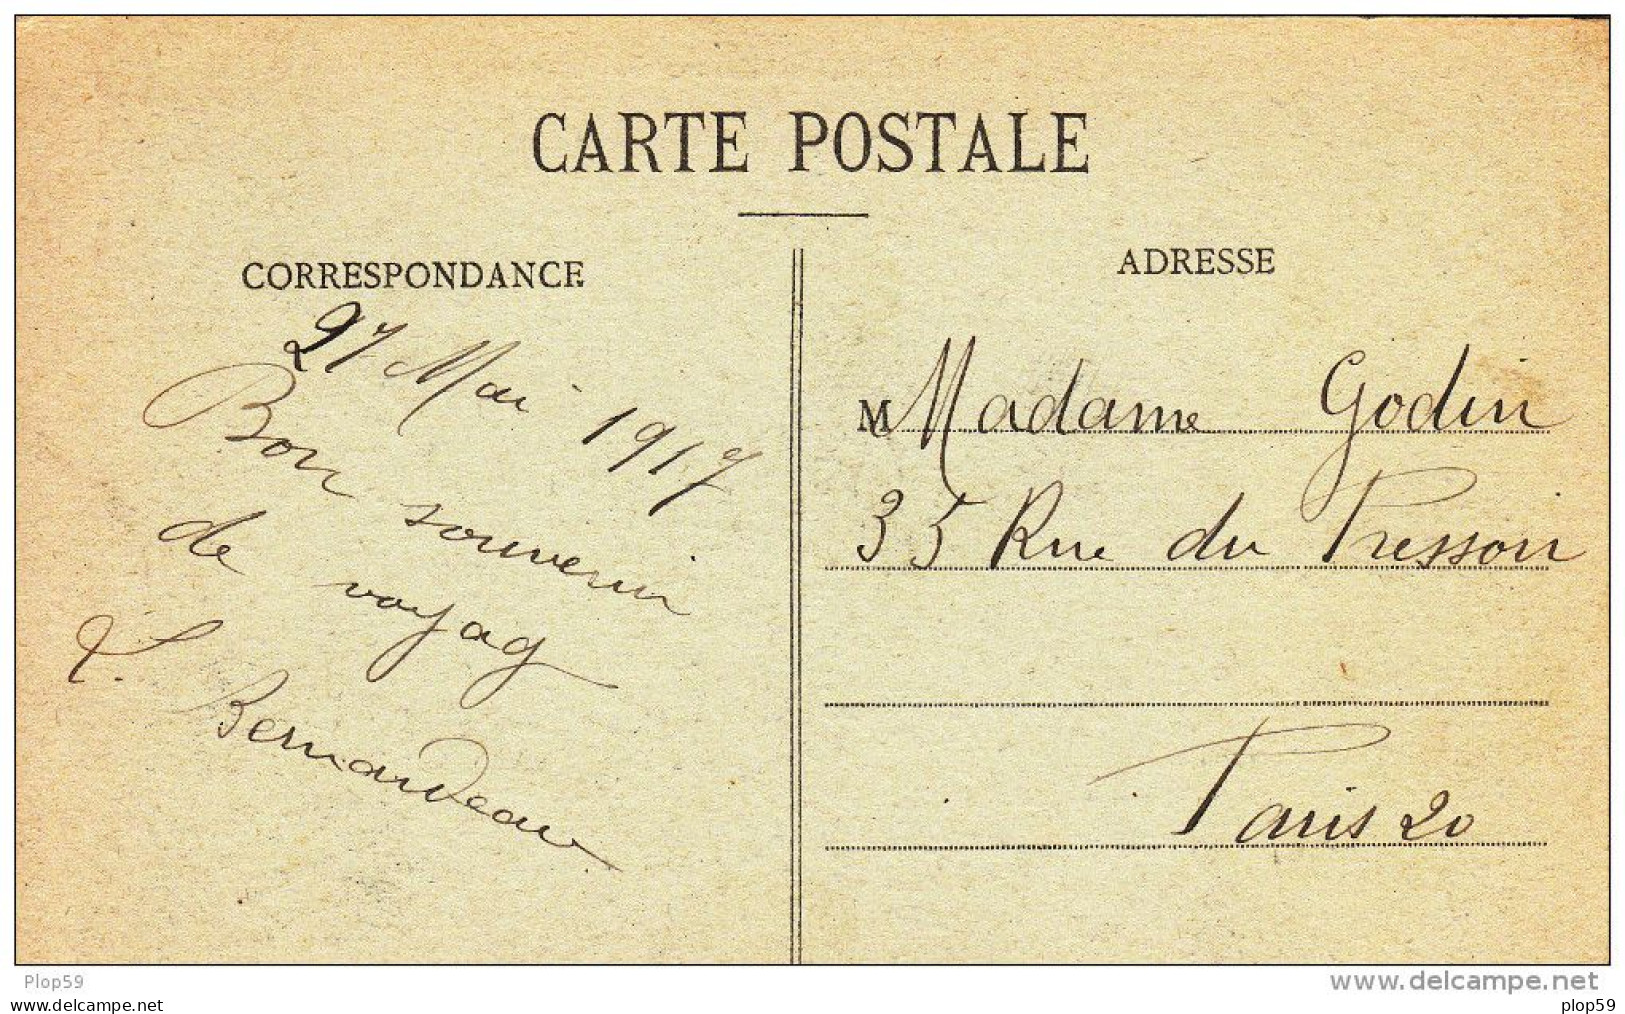 CARTE POSTALE
CORRESPONDANCE
27 Mai 1917
Bon souvenir
de voyag
Bernardeau
ADRESSE
M Madame Godin
35 Rue du Pressoir
Paris 20
Plop59
www.delcampe.net
plop59 www.delcampe.net
plop59